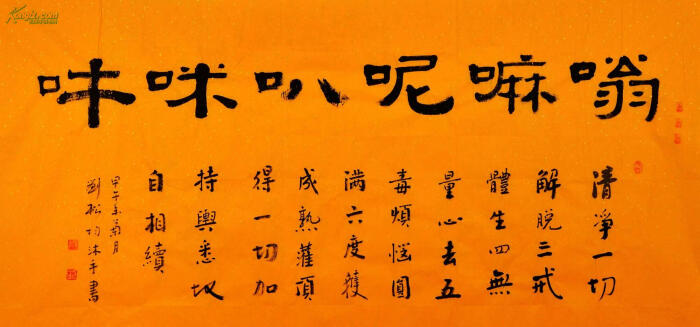 嗡嘛呢叭咪吽
清淨一切
解脱三戒
體生四無
量心去五
毒煩惱圓
满六度獲
成熟灌頂
得一切加
持與悉地
自相續
甲午年菊月
劉松均沐手書
Kongfz.com